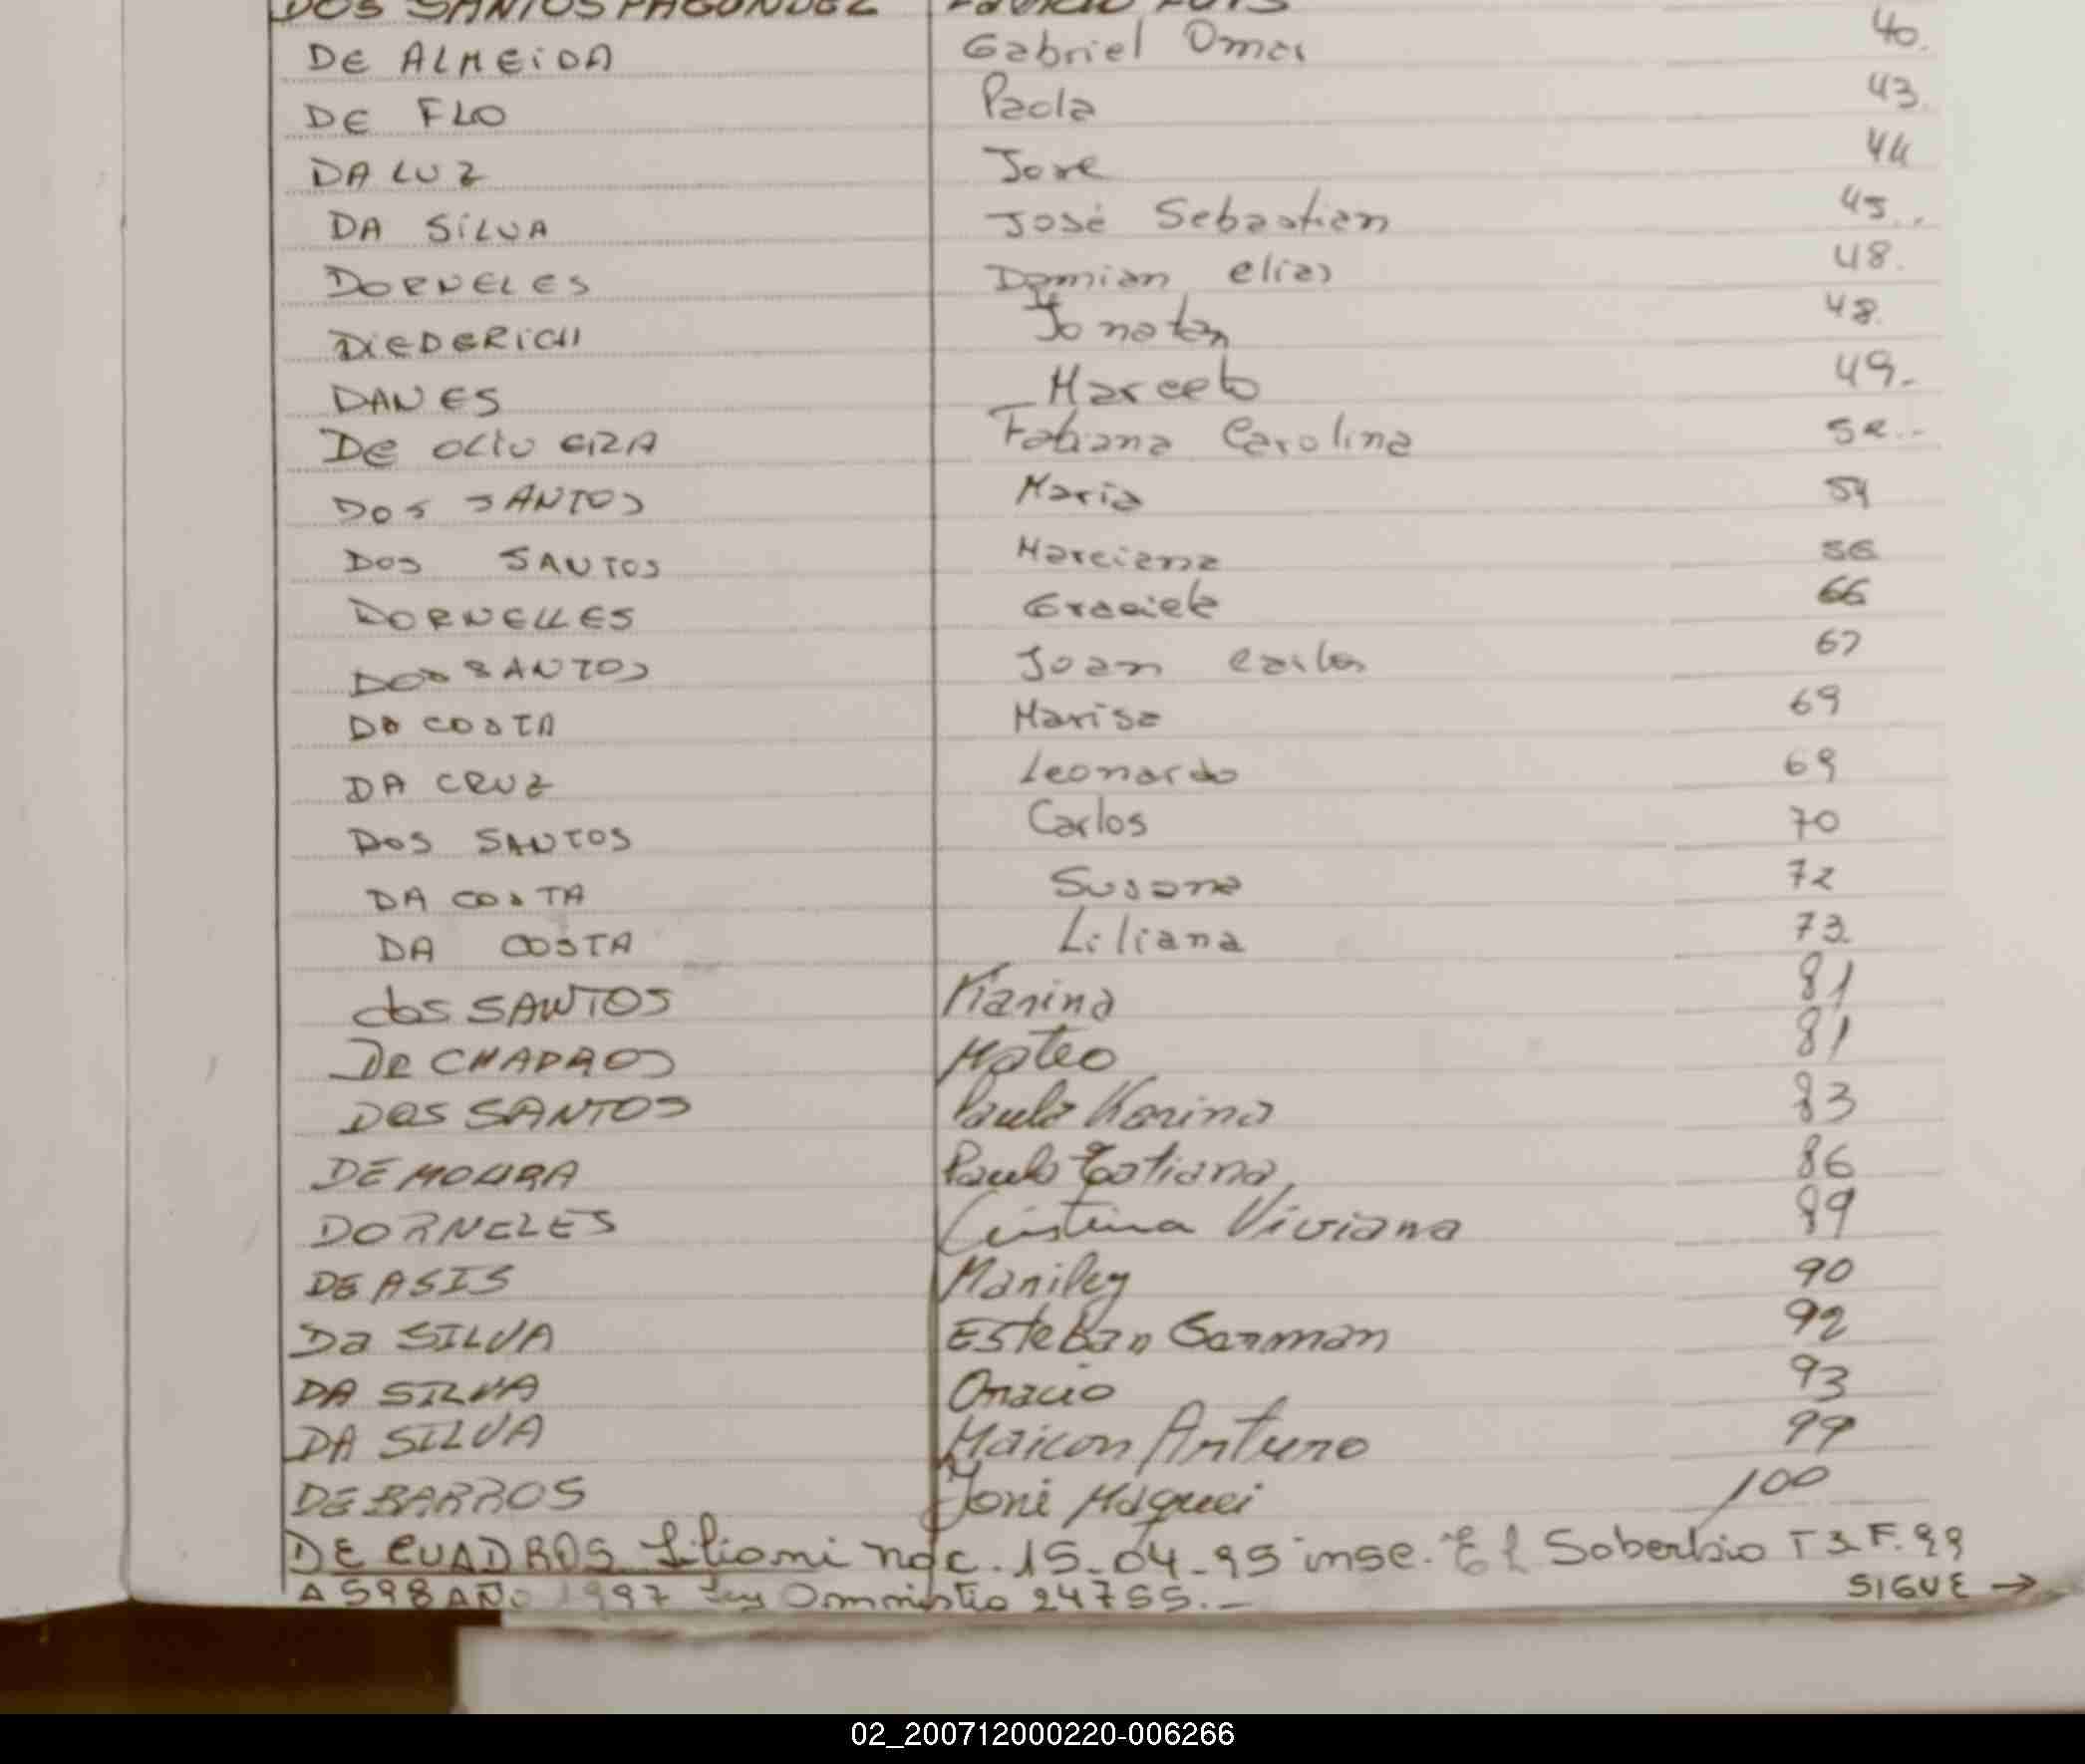 DOS SANTOS FAGUNDEZ Fabricio Luis
DE ALMEiDA Gabriel Omar 40.
DE FLO Paola 43.
DA LUZ Jose 44
DA SiLVA José Sebastian 45..
DORNELES Damian elias 48.
DiEDERiCH Jonatan 48.
DANES Marcelo 49.-
De OLIVEIRA Fabiana Carolina 52.-
DOS SANTOS Maria 54
DOS SANTOS Marciana 56
DORNELLES Graciela 66
DOS SANTOS Joan Carlos 67
DA COSTA Marisa 69
DA CRUZ Leonardo 69
DOS SANTOS Carlos 70
DA COSTA Susana 72
DA COSTA Liliana 73.
dos SANTOS Karina 81
De CHADROS Mateo 81
Dos SANTOS Paula Karina 83
DE MOURA Paula Tatiana 86
DORNELES Cristina Viviana 89
DE ASIS Mariley 90
Da SILVA Esteban German 92
DA SILVA Oracio 93
DA SILVA Maicon Arturo 99
DE BARROS Joni Maguei 100
DE CUADROS Liliani nac. 15-04-95 insc. El Soberbio T 3 F. 99
A 598 AÑO 1997 Ley Amnistia 24755.-
SIGUE →
02_200712000220-006266